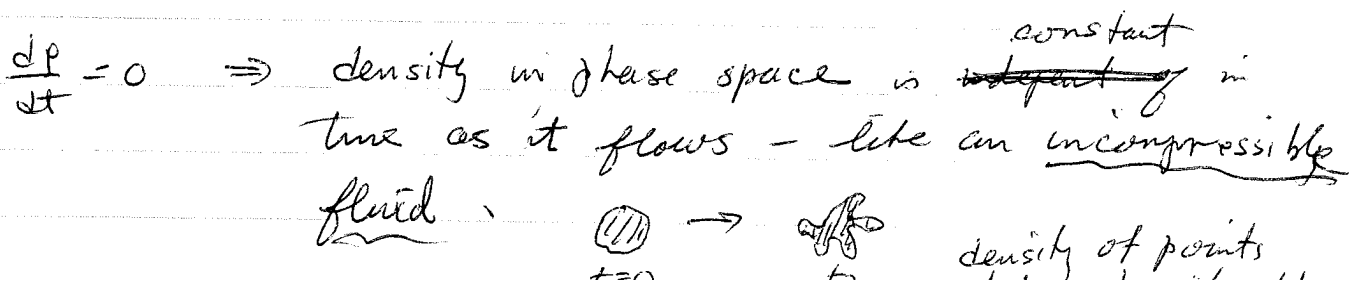 dρ/dt = 0 ⇒ density in phase space is constant in
time as it flows – like an incompressible
fluid.
→
t=0 t
density of points